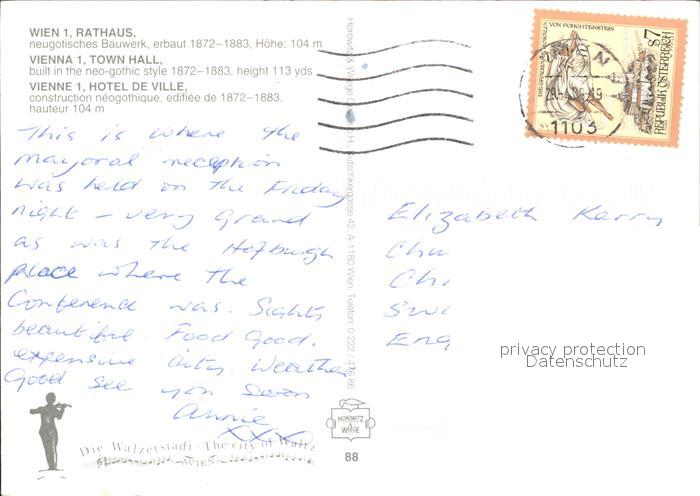 WIEN 1, RATHAUS,
neugotisches Bauwerk, erbaut 1872–1883, Höhe: 104 m
VIENNA 1, TOWN HALL,
built in the neo-gothic style 1872–1883, height 113 yds
VIENNE 1, HOTEL DE VILLE,
construction néogothique, edifiée de 1872–1883,
hauteur 104 m
This is where the
mayoral reception
was held on the Friday
night – very grand
as was the Hofburgh
place where the
Conference was. Sights
beautiful. Food Good.
expensive city. Weather
Good see you soon
Annie
XXX
Die Walzerstadt - The city of Waltz
WIEN
Horowitz & Weege
42, A-1180 Wien, Telefon: 0 222 /
HOROWITZ
&
WEEGE
88
VON FORCHTENSTEIN
S7
REPUBLIK ÖSTERREICH
1103
Elizabeth Kerry
Chu
Chi
Swi
Eng
privacy protection
Datenschutz